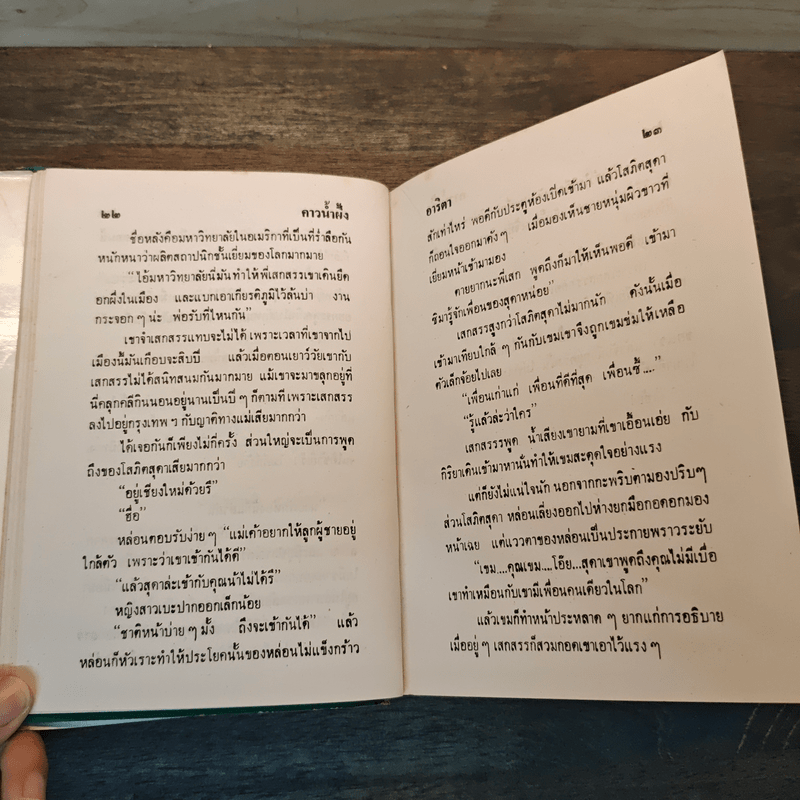 ๒๒ ดาวน้ำผึ้ง
ชื่อหลังคือมหาวิทยาลัยในอเมริกาที่เป็นที่ร่ำลือกัน
หนักหนาว่าผลิตสถาปนิกชั้นเยี่ยมของโลกมากมาย
“ไอ้มหาวิทยาลัยนี่มันทำให้พี่เสกสรรเขาเดินยืด
อกผึ่งในเมือง และแบกเอาเกียรติภูมิไว้ล้นบ่า งาน
กระจอก ๆ น่ะ พ่อรับที่ไหนกัน”
เขาจำเสกสรรแทบจะไม่ได้ เพราะเวลาที่เขาจากไป
เมืองนี้มันเกือบจะสิบปี แล้วเมื่อตอนเยาว์วัยเขากับ
เสกสรรไม่ได้สนิทสนมกันมากมาย แม้เขาจะมาขลุกอยู่ที่
นี่คลุกคลีกินนอนอยู่นานเป็นปี ๆ ก็ตามที เพราะเสกสรร
ลงไปอยู่กรุงเทพ ฯ กับญาติทางแม่เสียมากกว่า
ได้เจอกันก็เพียงไม่กี่ครั้ง ส่วนใหญ่จะเป็นการพูด
ถึงของโสภิตสุดาเสียมากกว่า
“อยู่เชียงใหม่ด้วยรึ”
“ฮื่อ”
หล่อนตอบรับง่าย ๆ “แม่เค้าอยากให้ลูกผู้ชายอยู่
ใกล้ตัว เพราะว่าเขาเข้ากันได้ดี”
“แล้วสุดาล่ะเข้ากับคุณน้าไม่ได้รึ”
หญิงสาวเบะปากออกเล็กน้อย
“ชาติหน้าบ่าย ๆ มั้ง ถึงจะเข้ากันได้” แล้ว
หล่อนก็หัวเราะทำให้ประโยคนั้นของหล่อนไม่แข็งกร้าว
อาริตา ๒๓
สักเท่าไหร่ พอดีกับประตูห้องเปิดเข้ามา แล้วโสภิตสุดา
ก็ถอนใจออกมาดัง ๆ เมื่อมองเห็นชายหนุ่มผิวขาวที่
เยี่ยมหน้าเข้ามามอง
ตายยากนะพี่เสก พูดถึงก็มาให้เห็นพอดี เข้ามา
ซิมารู้จักเพื่อนของสุดาหน่อย”
เสกสรรสูงกว่าโสภิตสุดาไม่มากนัก ดังนั้นเมื่อ
เข้ามาเทียบใกล้ ๆ กันกับเขมเขาจึงถูกเขมข่มให้เหลือ
ตัวเล็กจ้อยไปเลย
“เพื่อนเก่าแก่ เพื่อนที่ดีที่สุด เพื่อนซี้....”
“รู้แล้วล่ะว่าใคร”
เสกสรรพูด น้ำเสียงเขายามที่เขาเอื้อนเอ่ย กับ
กิริยาเดินเข้ามาหานั่นทำให้เขมสะดุดใจอย่างแรง
แต่ก็ยังไม่แน่ใจนัก นอกจากกะพริบตามองปริบๆ
ส่วนโสภิตสุดา หล่อนเลี่ยงออกไปห่างยกมือกอดอกมอง
หน้าเฉย แต่แววตาของหล่อนเป็นประกายพราวระยับ
“เขม....คุณเขม....โอ๊ย...สุดาเขาพูดถึงคุณไม่มีเบื่อ
เขาทำเหมือนกับเขามีเพื่อนคนเดียวในโลก”
แล้วเขมก็ทำหน้าประหลาด ๆ ยากแก่การอธิบาย
เมื่ออยู่ ๆ เสกสรรก็สวมกอดเขาเอาไว้แรง ๆ